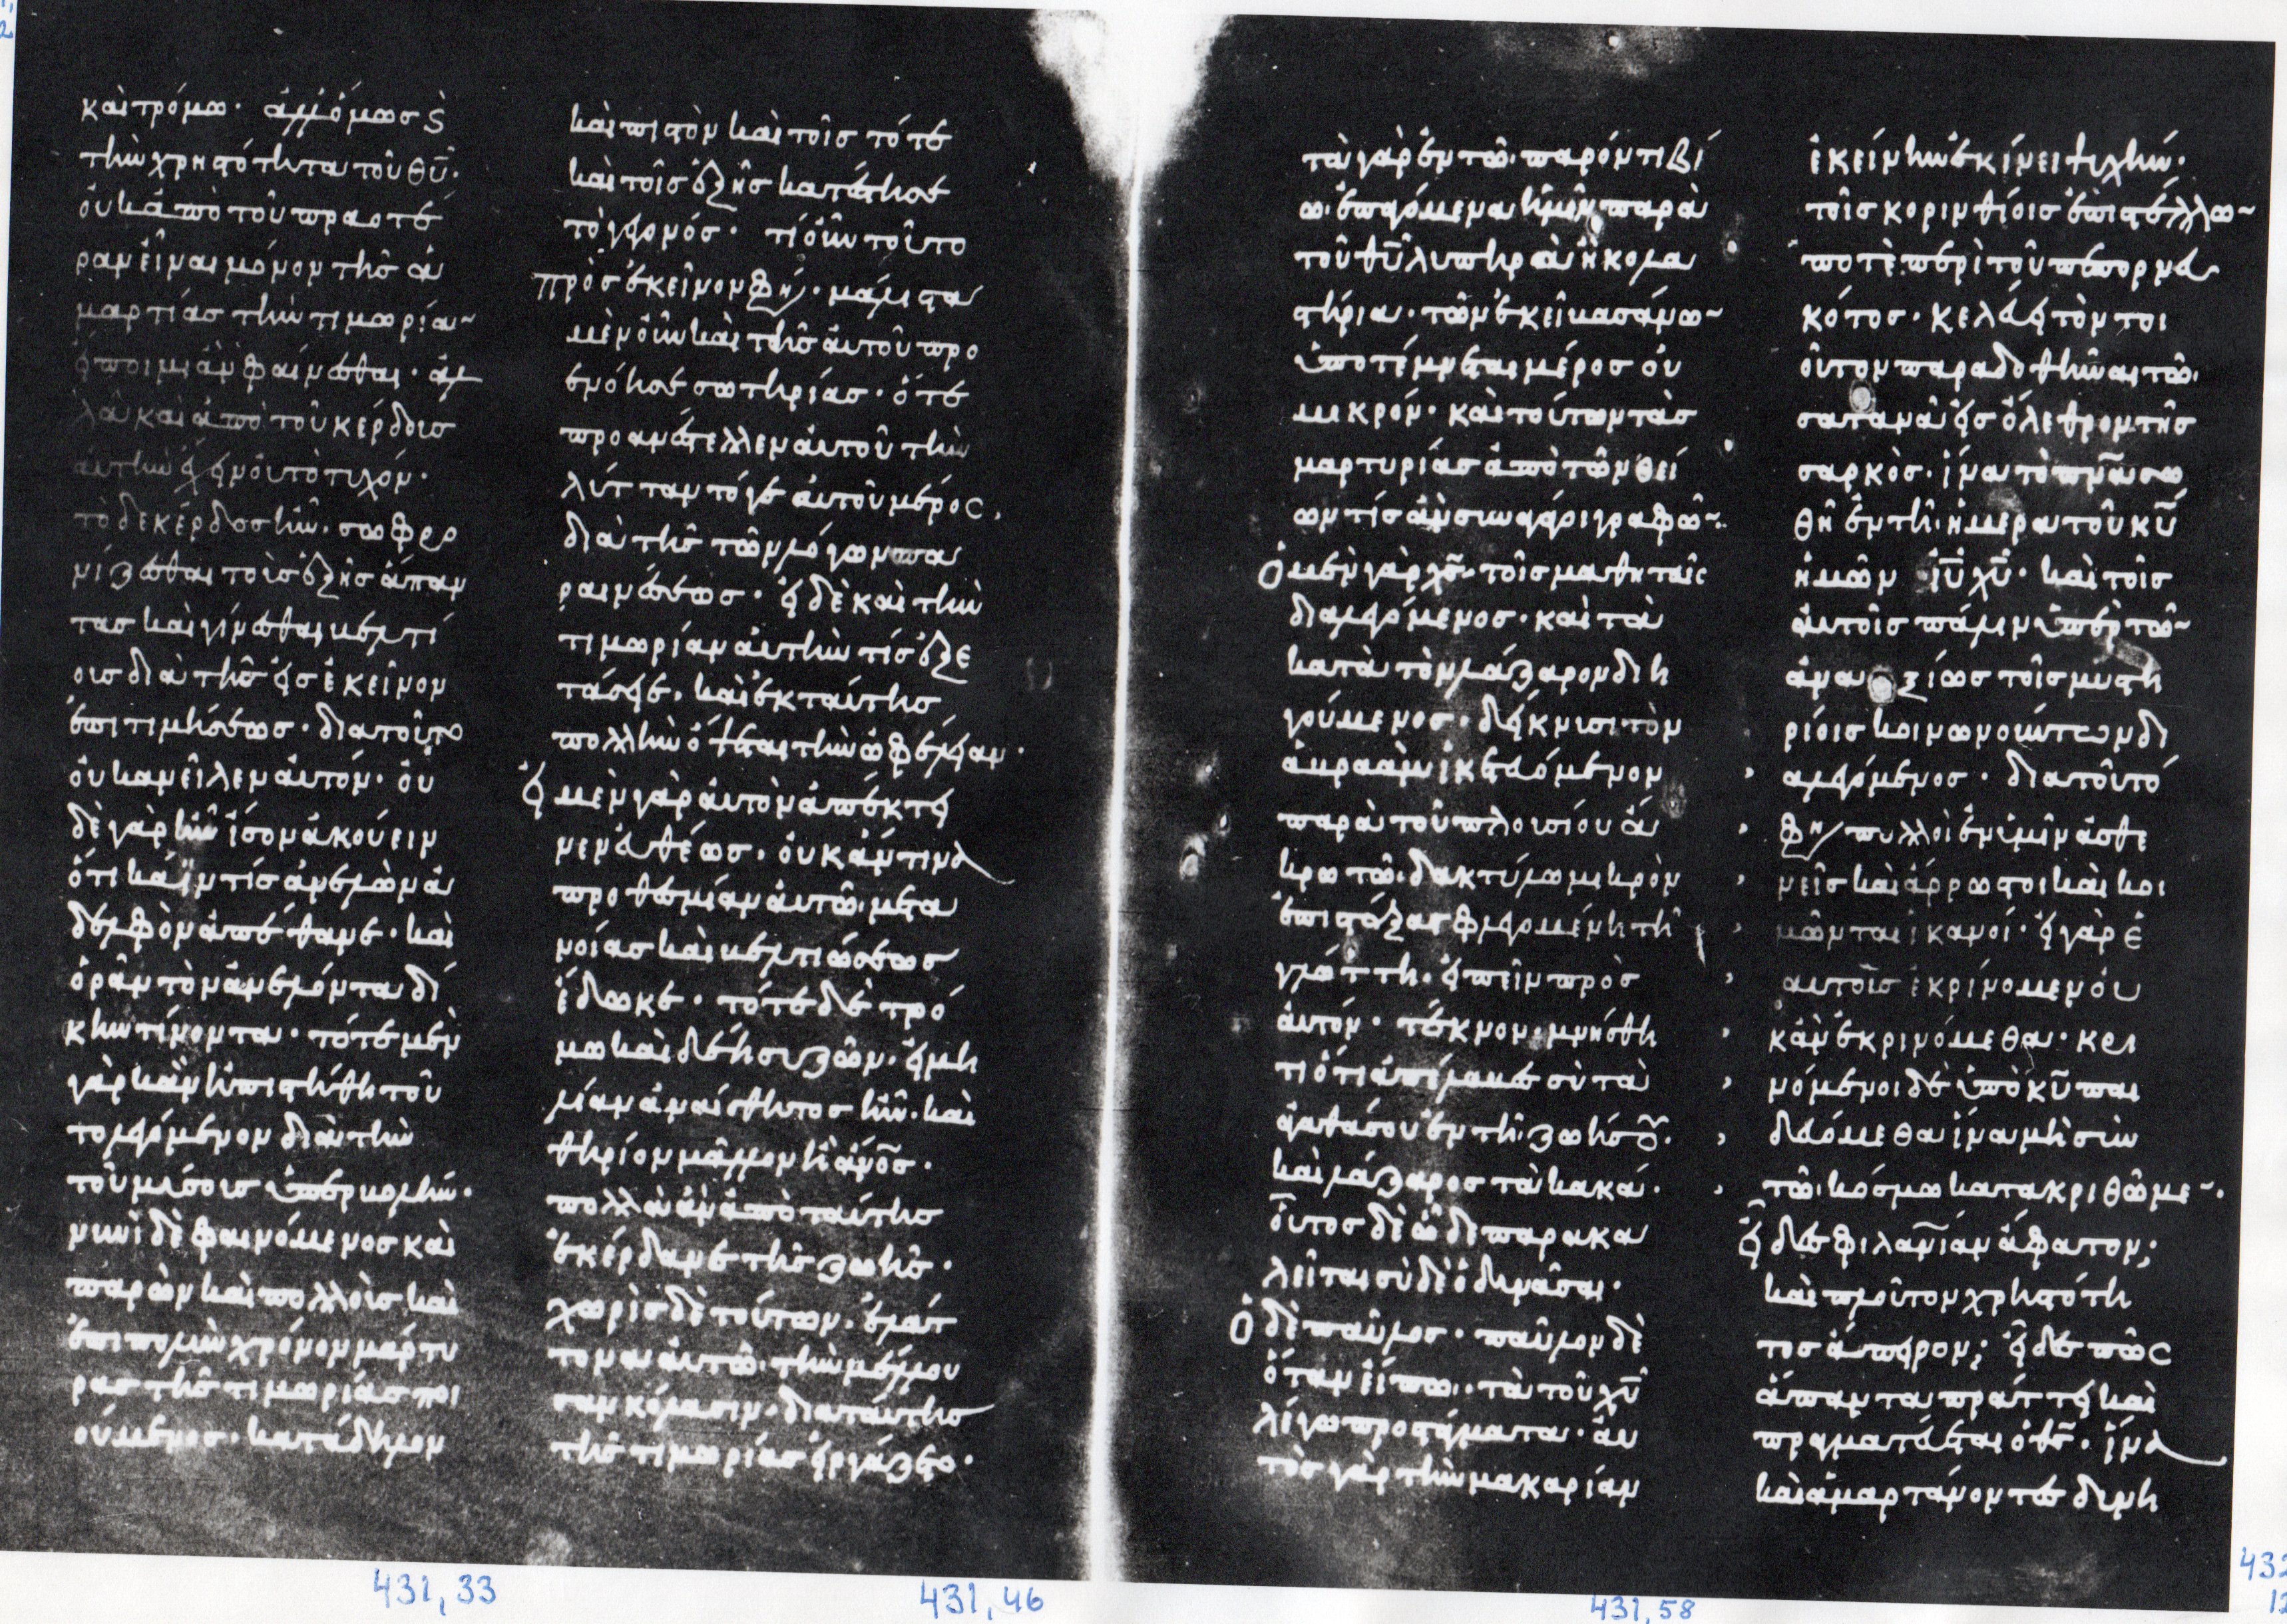 καὶ τρόμω· ἀλλ' ὅμως
τὴν χρηστότητα τοῦ θῦ·
οὐκ ἀπὸ τοῦ πραοτέ
ραν εἶναι μόνον τῆς ἁ
μαρτίας τὴν τιμωρίαν
ἀλ
λὰ καὶ ἀπὸ τοῦ κέρδους
αὐτὴν
τὸ δὲ κέρδος ἦν· σωφρο
νίζεσθαι τοὺς ἑξῆς ἅπαν
τας καὶ γίνεσθαι βελτί
ους διὰ τῆς εἰς ἐκεῖνον
ἐπιτιμήσεως· διὰ τοῦτο
οὐκ ἀνεῖλεν αὐτόν· οὐ
δὲ γὰρ ἦν ἴσον ἀκούειν
ὅτι κάϊν τίς ἀνελὼν ἀ
δελφὸν ἀπέθανε· καὶ
ὁρᾶν τὸν ἀνελόντα δί
κην τίνοντα· τότε μὲν
γὰρ κἂν ἠπιστήθη τοῦ
το λεγόμενον διὰ τὴν
τοῦ μύσους ὑπερβολήν·
νυνὶ δὲ φαινόμενος καὶ
παρὼν καὶ πολλοὺς καὶ
ἐπὶ πολὺν χρόνον μάρτυ
ρας τῆς τιμωρίας ποι
ούμενος· κατάδηλον
καὶ πιστὸν καὶ τοῖς τότε
καὶ τοῖς ἑξῆς κατέστησε
τὸ γεγονός· τί οὖν τοῦτο
πρὸς ἐκεῖνον φησί· μάλιστα
μὲν οὖν καὶ τῆς αὐτοῦ προ
ενόησε σωτηρίας· ὅτε
προανέστελλεν αὐτοῦ τὴν
λύτταν τό γε αὐτοῦ μέρος,
διὰ τῆς τῶν λόγων πα
ραινέσεως· εἰ δὲ καὶ τὴν
τιμωρίαν αὐτὴν τίς ἐξε
τάσειε, καὶ ἐκ ταύτης
πολλὴν ὄψεται τὴν ὠφέλειαν·
εἰ μὲν γὰρ αὐτὸν ἀπέκτει
νεν εὐθέως· οὐκ ἄν τινα
προθεσμίαν αὐτῷ μετα
νοίας καὶ βελτιώσεως
ἔδωκε· τότε δὲ τρό
μω καὶ δέει συζῶν· εἰ μὴ
λίαν ἀναίσθητος ἦν· καὶ
θηρίον μᾶλλον ἢ ἄνος·
πολλὰ ἂν ἀπὸ ταύτης
ἐκέρδανε τῆς ζωῆς·
χωρὶς δὲ τούτων· ἐλάτ
τονα αὐτῷ τὴν μέλλου
σαν κόλασιν διὰ ταύτης
τῆς τιμωρίας εἰργάζετο·
τὰ γὰρ ἐν τῷ παρόντι βί
ω ἐπαγόμενα ἡμῖν παρὰ
τοῦ θῦ λυπηρὰ ἢ κολα
στήρια· τῶν ἐκεῖ βασάνων
ὑποτέμνεται μέρος οὐ
μικρόν· καὶ τούτων τὰς
μαρτυρίας ἀπὸ τῶν θεί
ων τίς ἂν συναγάγοι γραφῶν·
ὁ μὲν γὰρ χς τοῖς μαθηταῖς
διαλεγόμενος· καὶ τὰ
κατὰ τὸν λάζαρον διη
γούμενος· δείκνυσι τὸν
ἀβραὰμ ἱκετευόμενον
παρὰ τοῦ πλουσίου ἄ
κρω τῷ δακτύλω μικρὸν
ἐπιστάξαι φλεγομένη τῇ
γλώττη· εἰπεῖν πρὸς
αὐτόν· τέκνον· μνήσθη
τι ὅτι ἀπέλαβες σὺ τὰ
ἀγαθά σου ἐν τῇ ζωῇ σου·
καὶ λάζαρος τὰ κακά·
οὗτος δὲ ὧδε παρακα
λεῖται σὺ δὲ ὀδυνᾶσαι·
ὁ δὲ παῦλος· παῦλον δὲ
ὅταν εἴπω· τὰ τοῦ χῦ
λέγω προστάγματα· αὐ
τὸς γὰρ τὴν μακαρίαν
ἐκείνην ἐκίνει ψυχήν·
τοῖς κορινθίοις ἐπιστέλλων
ποτὲ περὶ τοῦ πεπορνευ
κότος· κελεύει τὸν τοι
οῦτον παραδοθῆναι τῷ
σατανᾶ εἰς ὄλεθρον τῆς
σαρκὸς· ἵνα τὸ πνᾶ σω
θῇ ἐν τῇ ἡμέρα τοῦ κῦ
ἡμῶν ἰῦ χῦ· καὶ τοῖς
αὐτοῖς πάλιν ὑπὲρ τῶν
ἀναξίως τοῖς μυστη
ρίοις κοινωνούντων δι
αλεγόμενος· διὰ τοῦτό
φησι πολλοὶ ἐν ὑμῖν ἀσθε
νεῖς καὶ ἄρρωστοι καὶ κοι
μῶνται ἱκανοί· εἰ γὰρ ἑ
αυτοὺς ἐκρίνομεν οὐ
κ ἂν ἐκρινόμεθα· κρι
νόμενοι δὲ ὑπὸ κῦ παι
δευόμεθα ἵνα μὴ σὺν
τῷ κόσμω κατακριθῶμεν·
εἶδες φιλανίαν ἄφατον;
καὶ πλοῦτον χρηστότη
τος ἄπειρον; εἶδες πῶς
ἅπαντα πράττει καὶ
πραγματεύεται ὁ θς· ἵνα
καὶ ἁμαρτάνοντες δυνη
431,33
431,46
431,58